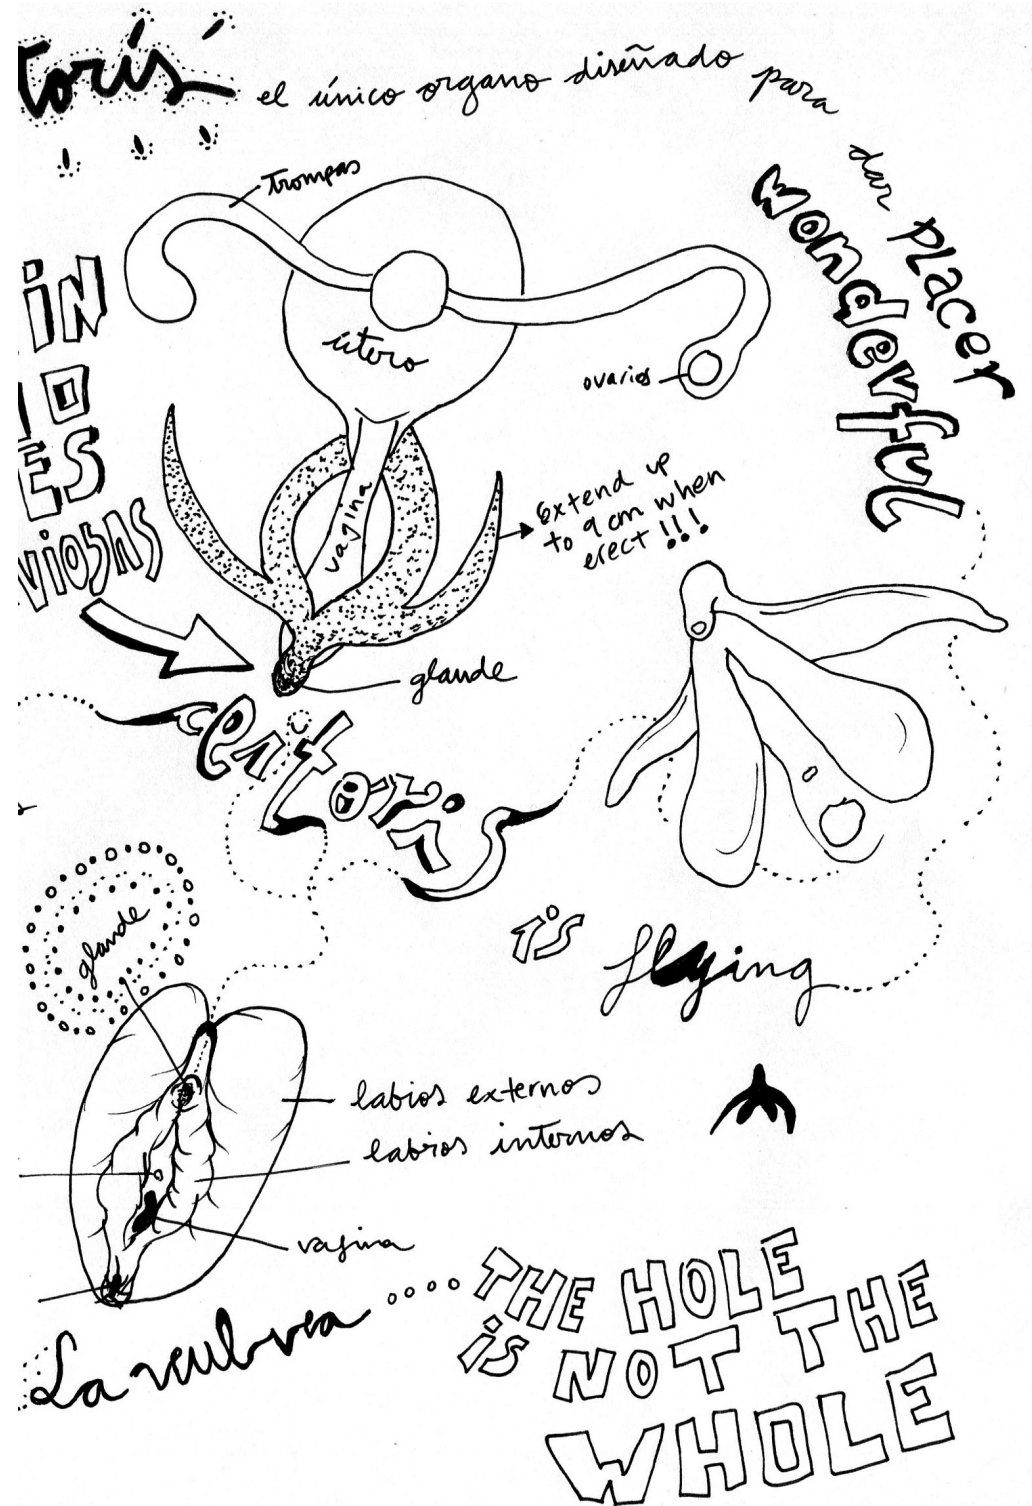 torís
el único organo diseñado para dar placer
wonderful
trompas
útero
ovarios
IN
IO
ES
VIOSAS
vagina
Extend up
to 9 cm when
erect!!!
glande
clitoris
is flying
glande
labios externos
labios internos
vagina
La vulvea
THE HOLE
is NOT THE
WHOLE